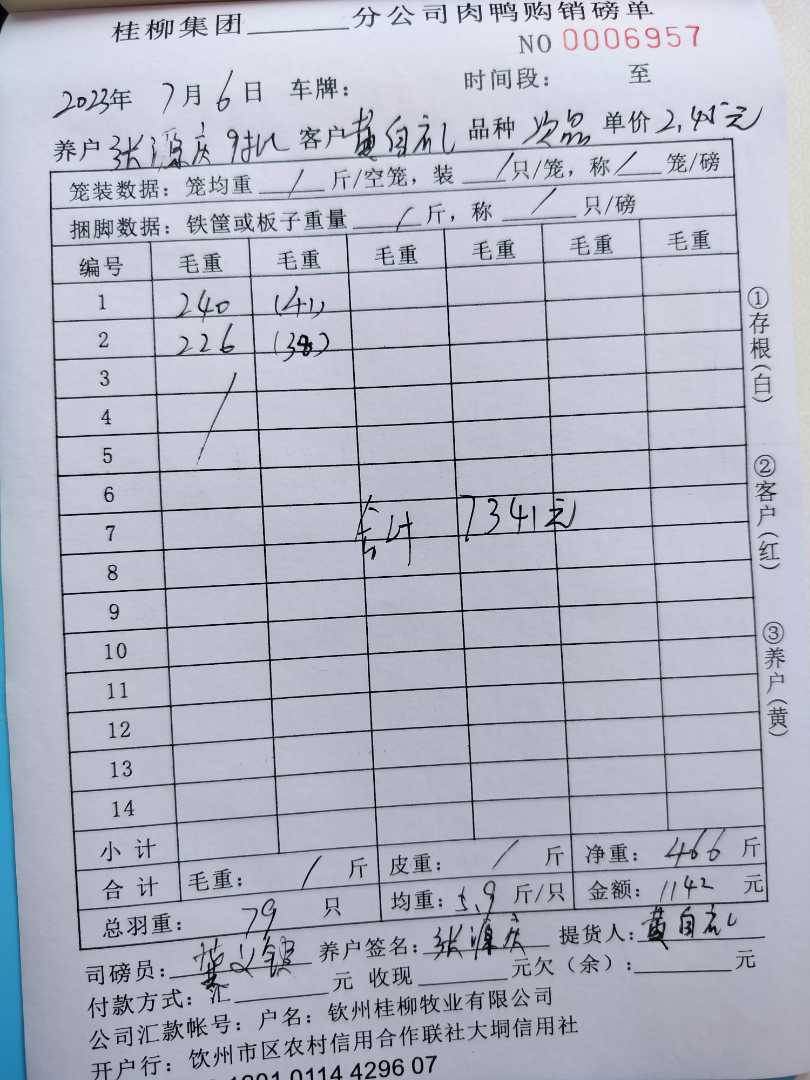 桂柳集团______分公司肉鸭购销磅单
NO 0006957
2023年 7月6日 车牌： 时间段： 至
养户 张源庆9批 客户 黄自礼 品种 次品 单价 2.45元
笼装数据：笼均重 / 斤/空笼，装 / 只/笼，称 / 笼/磅
捆脚数据：铁筐或板子重量 / 斤，称 / 只/磅
编号 毛重 毛重 毛重 毛重 毛重 毛重
1 240 (41)
2 226 (38)
3 /
4
5
6
7 合计 7341元
8
9
10
11
12
13
14
小计
合计 毛重： / 斤 皮重： / 斤 净重：466 斤
总羽重： 79 只 均重：5.9 斤/只 金额：1142 元
司磅员： 养户签名：张源庆 提货人：黄自礼
付款方式：汇______元 收现______元欠（余）：______元
公司汇款帐号：户名：钦州桂柳牧业有限公司
开户行：钦州市区农村信用合作联社大垌信用社
0114 4296 07
①存根（白）
②客户（红）
③养户（黄）